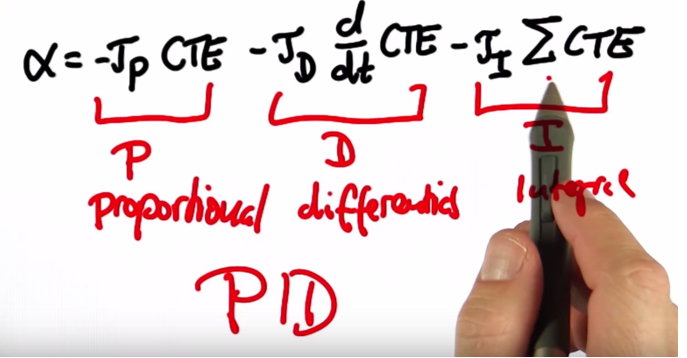 α = -τP CTE - τD d/dt CTE - τI Σ CTE
P D I
proportional differential integral
PID